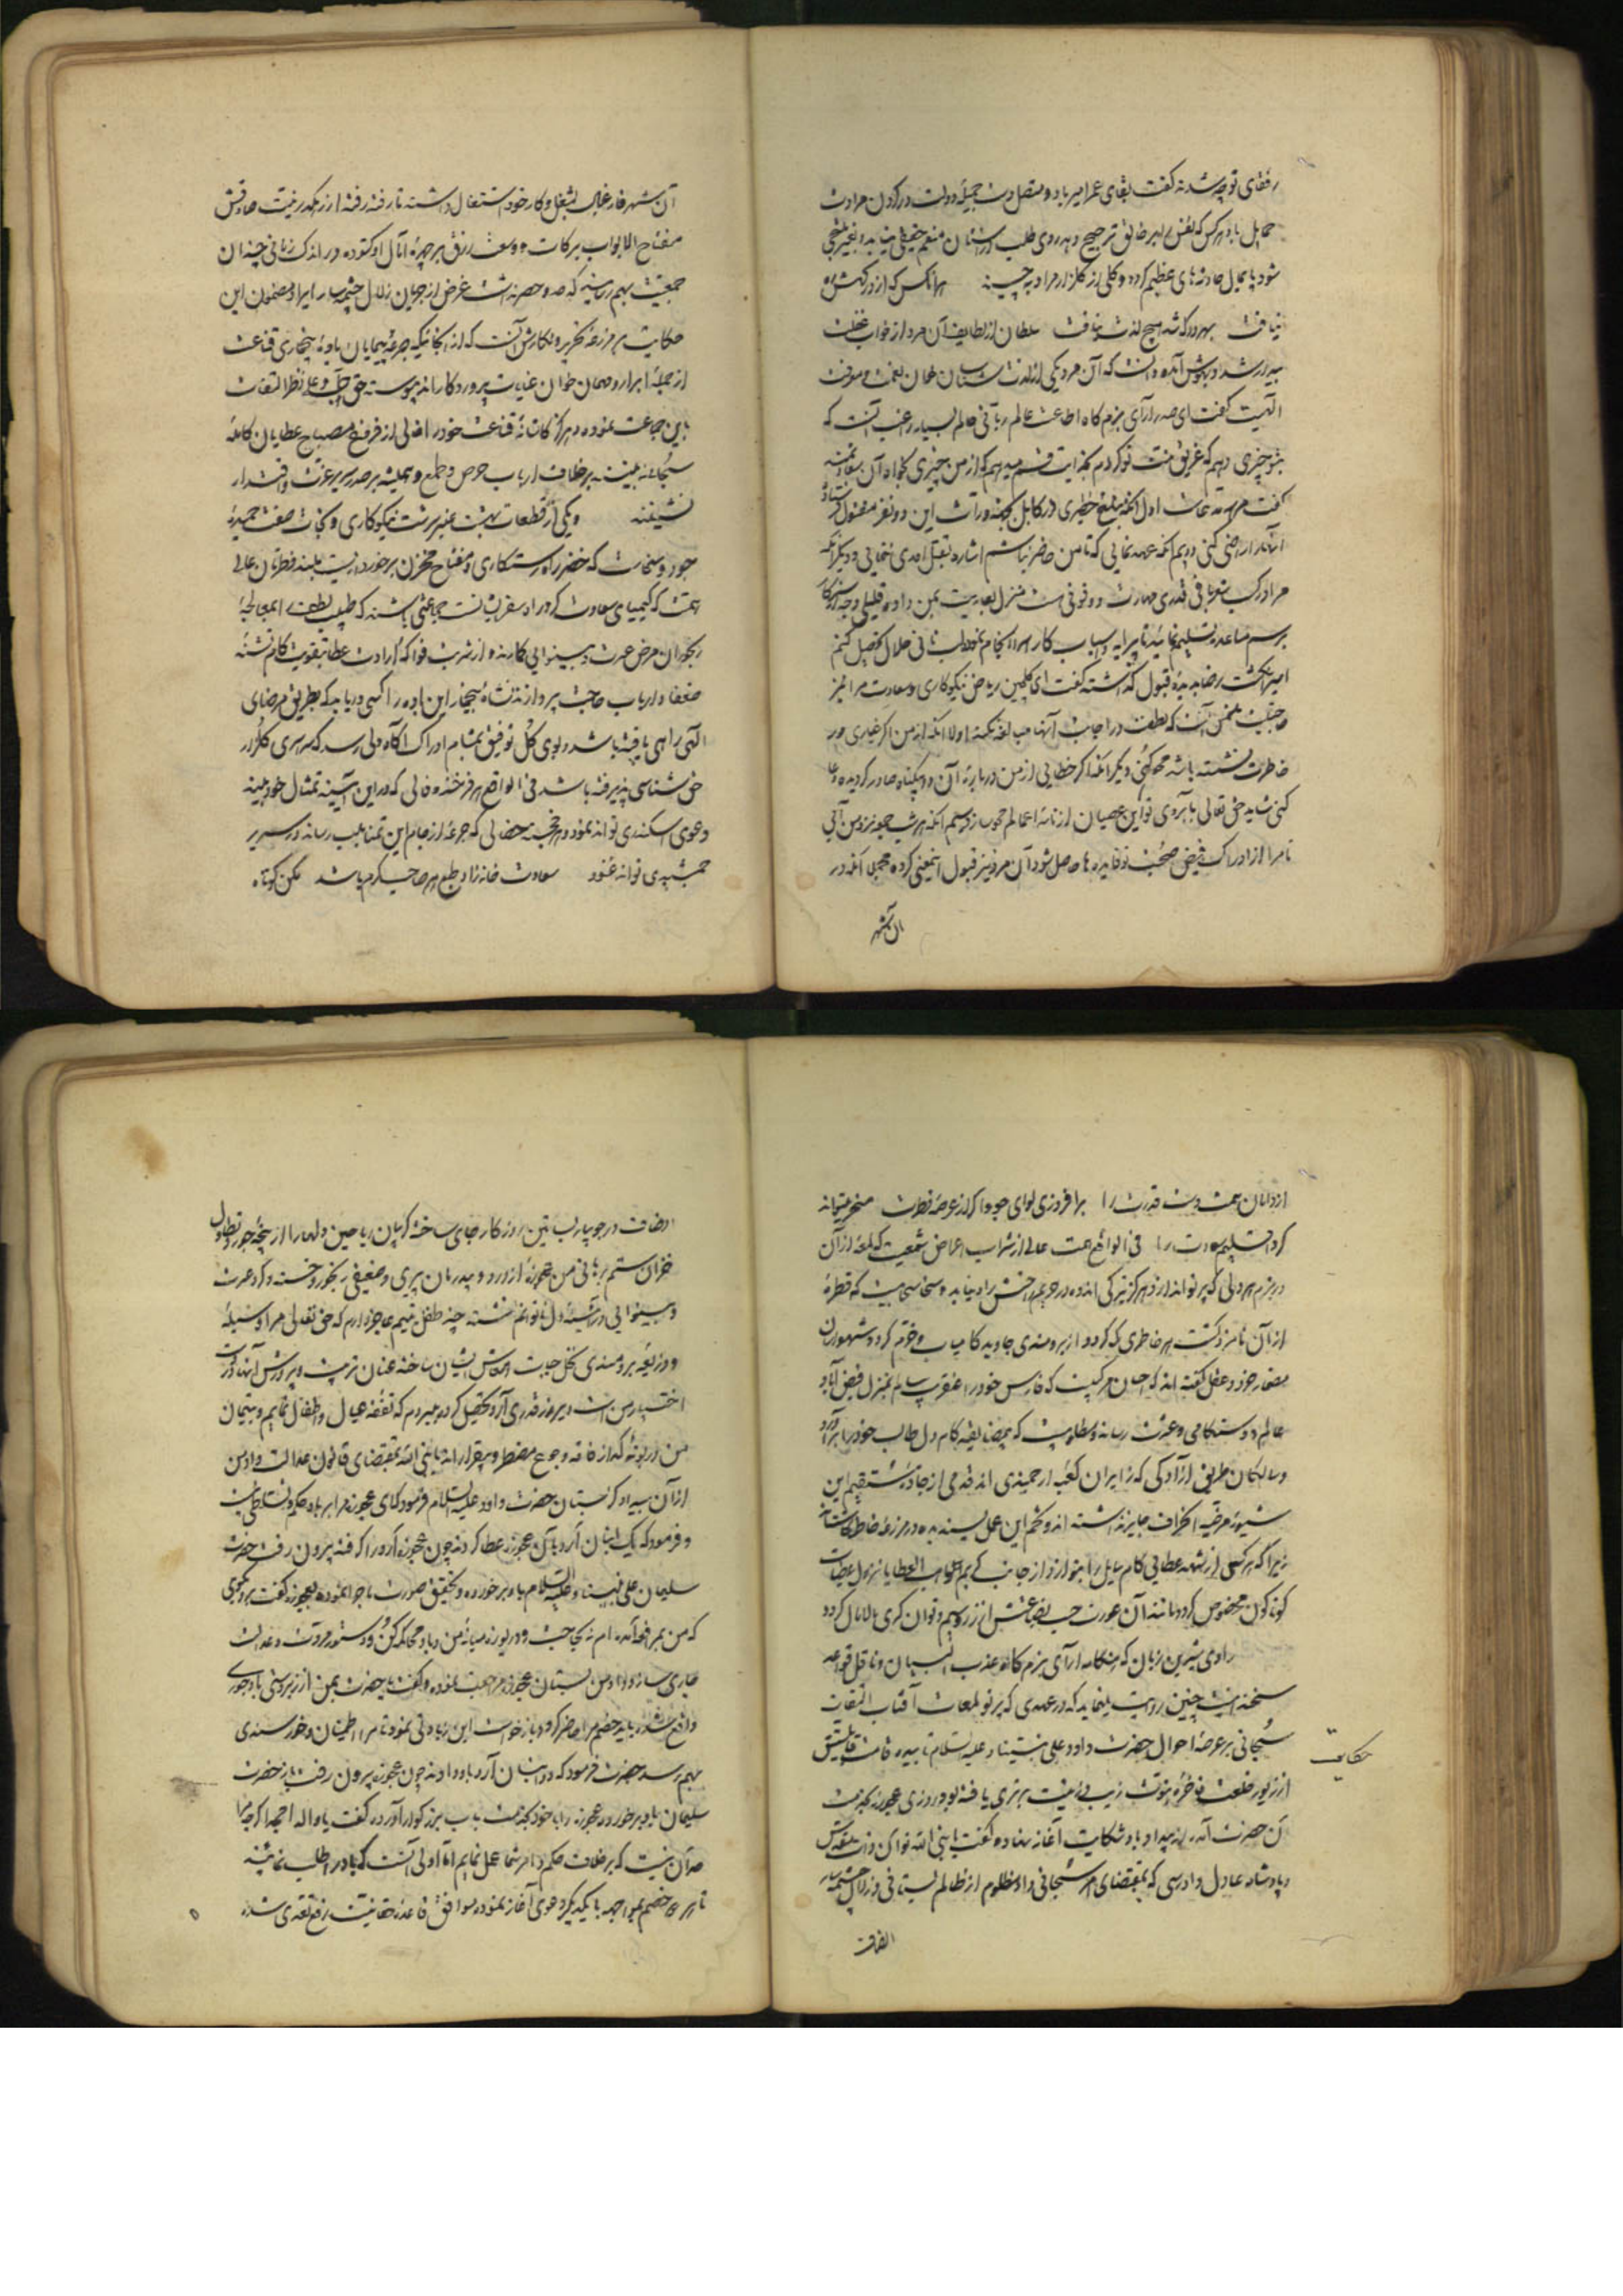 رفقای توجه شدند گفت بقای عمر امیر باد و متصل
باد هر کس که نفس را بر خالق ترجیح دهد روی طلب از منعم حقیقی بتابد
شود پایمال حادثه های عظیم گردد و گلی از گلزار مراد نچیند هر آنکس که از درگهش
نیافت بهر در که شد هیچ لذت نیافت سلطان از لطایف آن مرد از خواب غفلت
بیدار شد و بهوش آمده دانست که آن مرد یکی از لذت شناسان خوان نعمت و معرفت
الهیست گفت ای صدر آرای بزمگاه اطاعت عالم ربانی دلم بسیار راغب آنست که
بتو چیزی دهم که غریق منت تو گردم بخدایت قسم میدهم که از من چیزی بخواه آن سعادتمند
گفت مرا سه مدعاست اول آنکه مبلغ خطیری در مقابل ورثه این دو نفر مقتول
آنها را راضی کنی دویم آنکه عهد نمایی که تا من حاضر نباشم اشاره بقتل احدی ننمایی و دیگر آنکه
مرا در کسب شعربافی قدری مهارت و وقوفی هست منزل بعاریت بمن داده قلیلی وجه
برسم مساعده تسلیم نمایید تا پیرایه و اسباب کار سرانجام نموده لب نانی حلال تحصیل کنم
امیر انگشت رضا بدیده قبول گذاشته گفت ای گلچین ریاض نیکوکاری و سعادت مرا نیز
آنست که لطفت در اجابت آنها مبالغه نکند اولا آنکه از من اگر غباری در
خاطرت نشسته باشد محو کنی و دیگر آنکه اگر خطایی از من درباره آن دو بیگناه صادر گردیده دعا
کنی شاید حق تعالی به آبروی تو این عصیان از نامه اعمالم محو سازد سیم آنکه هر شب جمعه نزد من آیی
تا مرا از ادراک فیض صحبت تو فایده ها حاصل شود آن مرد نیز قبول اینمعنی کرده مجملا آنمرد در
آن شهر
آن شهر فارغبال بشغل و کار خود اشتغال داشته تا رفته رفته از رهگذر نیت صادقش
مفتاح الابواب برکات و وسعت رزق بر چهره آمال او گشوده در اندک زمانی چندان
جمعیت بهم رسانید که حد و حصر نداشت غرض از جریان زلال چشمه سار ایراد مضمون این
حکایت بر مزرعه تحریر و نگارش آنست که از آنجا که جرعه پیمایان باده قناعت
از جمله ابرار و مهمان خوان عنایت پروردگارند پیوسته حق جل و علا نظر التفات
باین جماعت نموده هرگز کاشانه قناعت خود را خالی از فروغ مصباح عطایای کامله
سبحانی نبینند بر خلاف ارباب حرص و طمع و همیشه بر صدر سریر عزت و اقتدار
نشینند و یکی از قطعات بهشت عنبر سرشت نیکوکاری و نجات صفت حمیده
جود و سخاست که خضر راه رستگاری و مفتاح مخزن برخورداریست بلند فطرتان عالی
همت که کیمیای سعادت جماعتی باشند که طبیب لطفشان بمعالجه
رنجوران مرض عسرت و بینوایی گمارند و از شربت فواکه ارادت عطا بتقویت کام تشنه
ضعفا و ارباب حاجت پردازند نشاه این باده را کسی دریابد که بطریق مرضای
الهی راهی یافته باشد و بوی گل توفیق بمشام ادراک آگاه دلی رسد که سری گلزار
حق شناسی پذیرفته باشد فی الواقع هر فرخنده فالی که در این آیینه تمثال خود بیند
دعوی اسکندری تواند نمود و هر خجسته خصالی که جرعه از جام این تمنا بلب رساند در سریر
جمشیدی تواند غنود سعادت خانه زاد طبع هر صاحب کرم باشد مکن کوتاه
از دامان همت دست قدرت را برافروزی لوای جود اگر در عرصه فطرت مسخر میتوانی
کرد اقلیم سعادت را فی الواقع همت عالی از اغراض شمعیست که لمعه از آن
در بزم هر دلی که پرتو اندازد هرگز تیرگی اندوه در حریمش راه نیابد و سخا سحابیست که قطره
از آن نامزد کشت هر خاطری که گردد از برومندی جاوید کامیاب و خرم گردد شهسواران
مضمار خرد و عقل گفته اند که احسان مرکبیست که فارس خود را عنقریب سالم بمنزل فیض آباد
عالم دوستکامی و عزت رساند و مطلوبیست که بمضایقه کام دل طالب خود را برآورد
و سالکان طریق آزادگی که زایران کعبه ارجمندی اند قدمی از جاده مستقیم این
شیوه مرضیه انحراف جایز نداشته اند و تخم این عمل پسندیده در مزرعه خاطرها کاشته اند
زیرا که هر کس از رشحه عطایی کام سایل را بنوازد از جانب کریم واهب العطایا بنزول عطیات
گوناگون مخصوص گردد مانند آن عورت جیب بضاعتش از زر و سیم توانگری مالامال گردد
راوی شیرین زبان که هنگامه آرای بزمگاه عذب البیان و ناقل قواعد
سخندانیست چنین روایت مینماید که در عهدی که پرتو لمعات آفتاب التفات
سبحانی بر عرصه احوال حضرت داود علی نبینا و علیه السلام تابیده قامت قابلیتش
از زیور خلعت فاخره نبوت زیب و زینت برتری یافته بود روزی عجوزه بخدمت
آن حضرت آمده از بیداد باد شکایت آغاز نهاده گفت یا نبی الله توئی
و پادشاه عادل و دادرسی که بمقتضای امر سبحانی داد مظلوم از ظالم بستانی و زلال چشمه سار
حکایت
انصافت
انصافت در جویبار بساتین روزگار جای ساخته گریبان ریاحین دلها را از پنجه جور و تطاول
خزان ستم برهانی من عجوزه ام از درد بیدرمان پیری و ضعیفی رنجور و خسته و گرد عسرت
و بینوایی بر آیینه دل ناتوانم نشسته چند طفل یتیم عاجز دارم که حق تعالی مرا وسیله
و ذریعه برومندی نخل حیات و معاش ایشان ساخته عنان تربیت و پرورش آنها در دست
اختیار من است دیروز قدری آرد تحصیل کرده میبردم که نفقه عیال و اطفال نمایم و یتیمان
من در بوته گداز فاقه و جوع مضطر و بیقرارند یا نبی الله بمقتضای قانون عدالت داد من
از آن بیدادگر بستان حضرت داود علیه السلام فرمود که ای عجوزه مرا بر باد حکم و تسلطی نیست
و فرمود که یک انبان آرد بآن عجوزه عطا کردند چون عجوزه آرد را گرفته بیرون رفت حضرت
سلیمان علی نبینا و علیه السلام باو برخورده و تحقیق صورت ماجرا نموده بعجوزه گفت برو بگوی
که من بمرافعه آمده ام نه بحاجت و دریوزه میانه من و باد محاکمه کن و دستور مروت و عدالت
جاری ساز و داد من بستان عجوزه مراجعت نموده گفت یا حضرت بمن از زبردستی باد جوری
واقع شده باید خصم مرا حاضر کرد و بازخواست این زیادتی نمود تا مرا اطمینان و خورسندی
بهم رسد حضرت فرمود که دو انبان آرد باو دادند چون عجوزه بیرون رفت باز حضرت
سلیمان باو برخورد و عجوزه را با خود بخدمت باب بزرگوار آورده گفت یا والد امجد اگر چه مرا
حد آن نیست که بر خلاف حکم و امر شما عمل نمایم اما اولی آنست که باد را طلب نمائید
تا هر دو خصم بمواجهه با یکدیگر دعوی آغاز نموده موافق قاعده حقانیت رفع تعدی شده